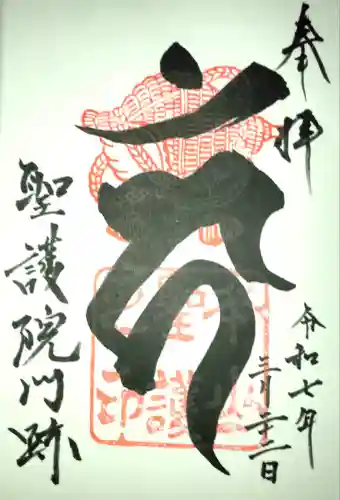 奉拝
令和七年
三月二十二日
聖護院門跡